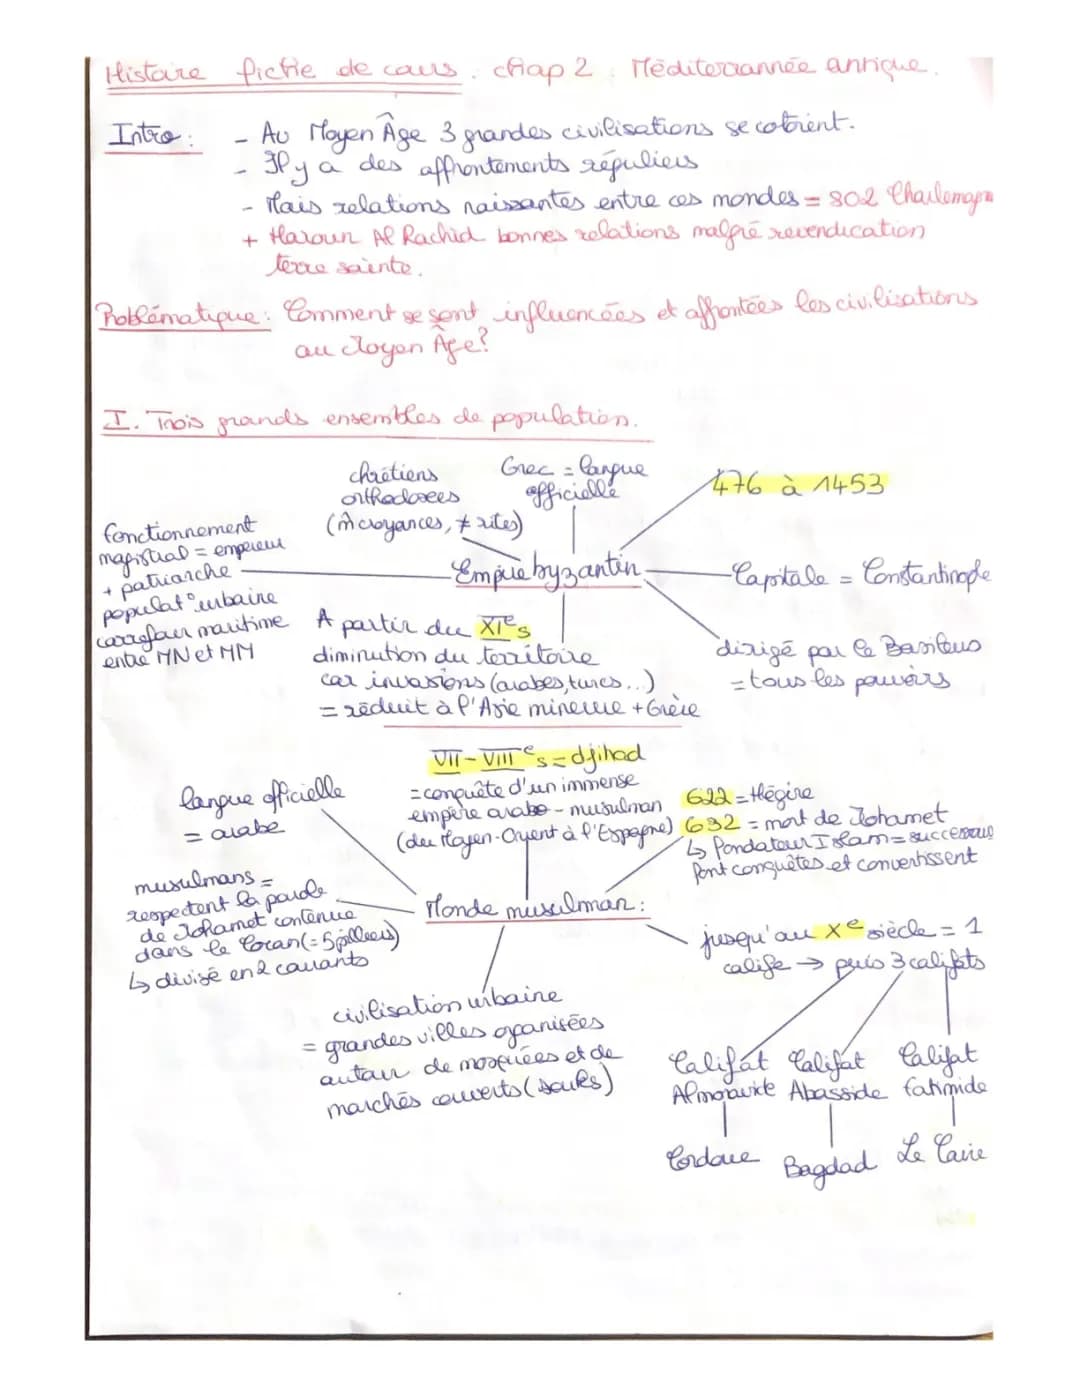 Histoire fiche de cours. chap 2 Méditerrannée antique.
Intro : - Au Moyen Âge 3 grandes civilisations se cotoient.
- Il y a des affrontements réguliers
- Mais relations naissantes entre ces mondes = 802 Charlemagn
+ Haroun Al Rachid bonnes relations malgré revendication
terre sainte.
Problématique : Comment se sont influencées et affrontées les civilisations
au Moyen Âge?
I. Trois grands ensembles de population.
chrétiens
orthodoxes
(m̂ croyances, ≠ rites)
Grec = langue
officielle
476 à 1453
fonctionnement
magistral = empereur
+ patriarche
populat° urbaine
carrefour maritime
entre MN et MM
Empire byzantin
Capitale = Constantinople
A partir du XIe s
diminution du territoire
car invasions (arabes, turcs...)
= réduit à l'Asie mineure + Grèce
dirigé par le Basileus
= tous les pouvoirs
VII - VIIIe s = djihad
= conquête d'un immense
empire arabo-musulman
(du Moyen-Orient à l'Espagne)
langue officielle
= arabe
622 = Hégire
632 = mort de Mohamet
↳ fondateur Islam = successeurs
font conquêtes et convertissent
musulmans =
respectent la parole
de Mohamet contenue
dans le Coran (= 5 pilliers)
↳ divisé en 2 courants
Monde musulman :
jusqu'au Xe siècle = 1
calife → puis 3 califats
civilisation urbaine
= grandes villes organisées
autour de mosquées et de
marchés couverts (souks)
Califat Califat Califat
Almoravide Abasside fatimide
Cordoue Bagdad Le Caire